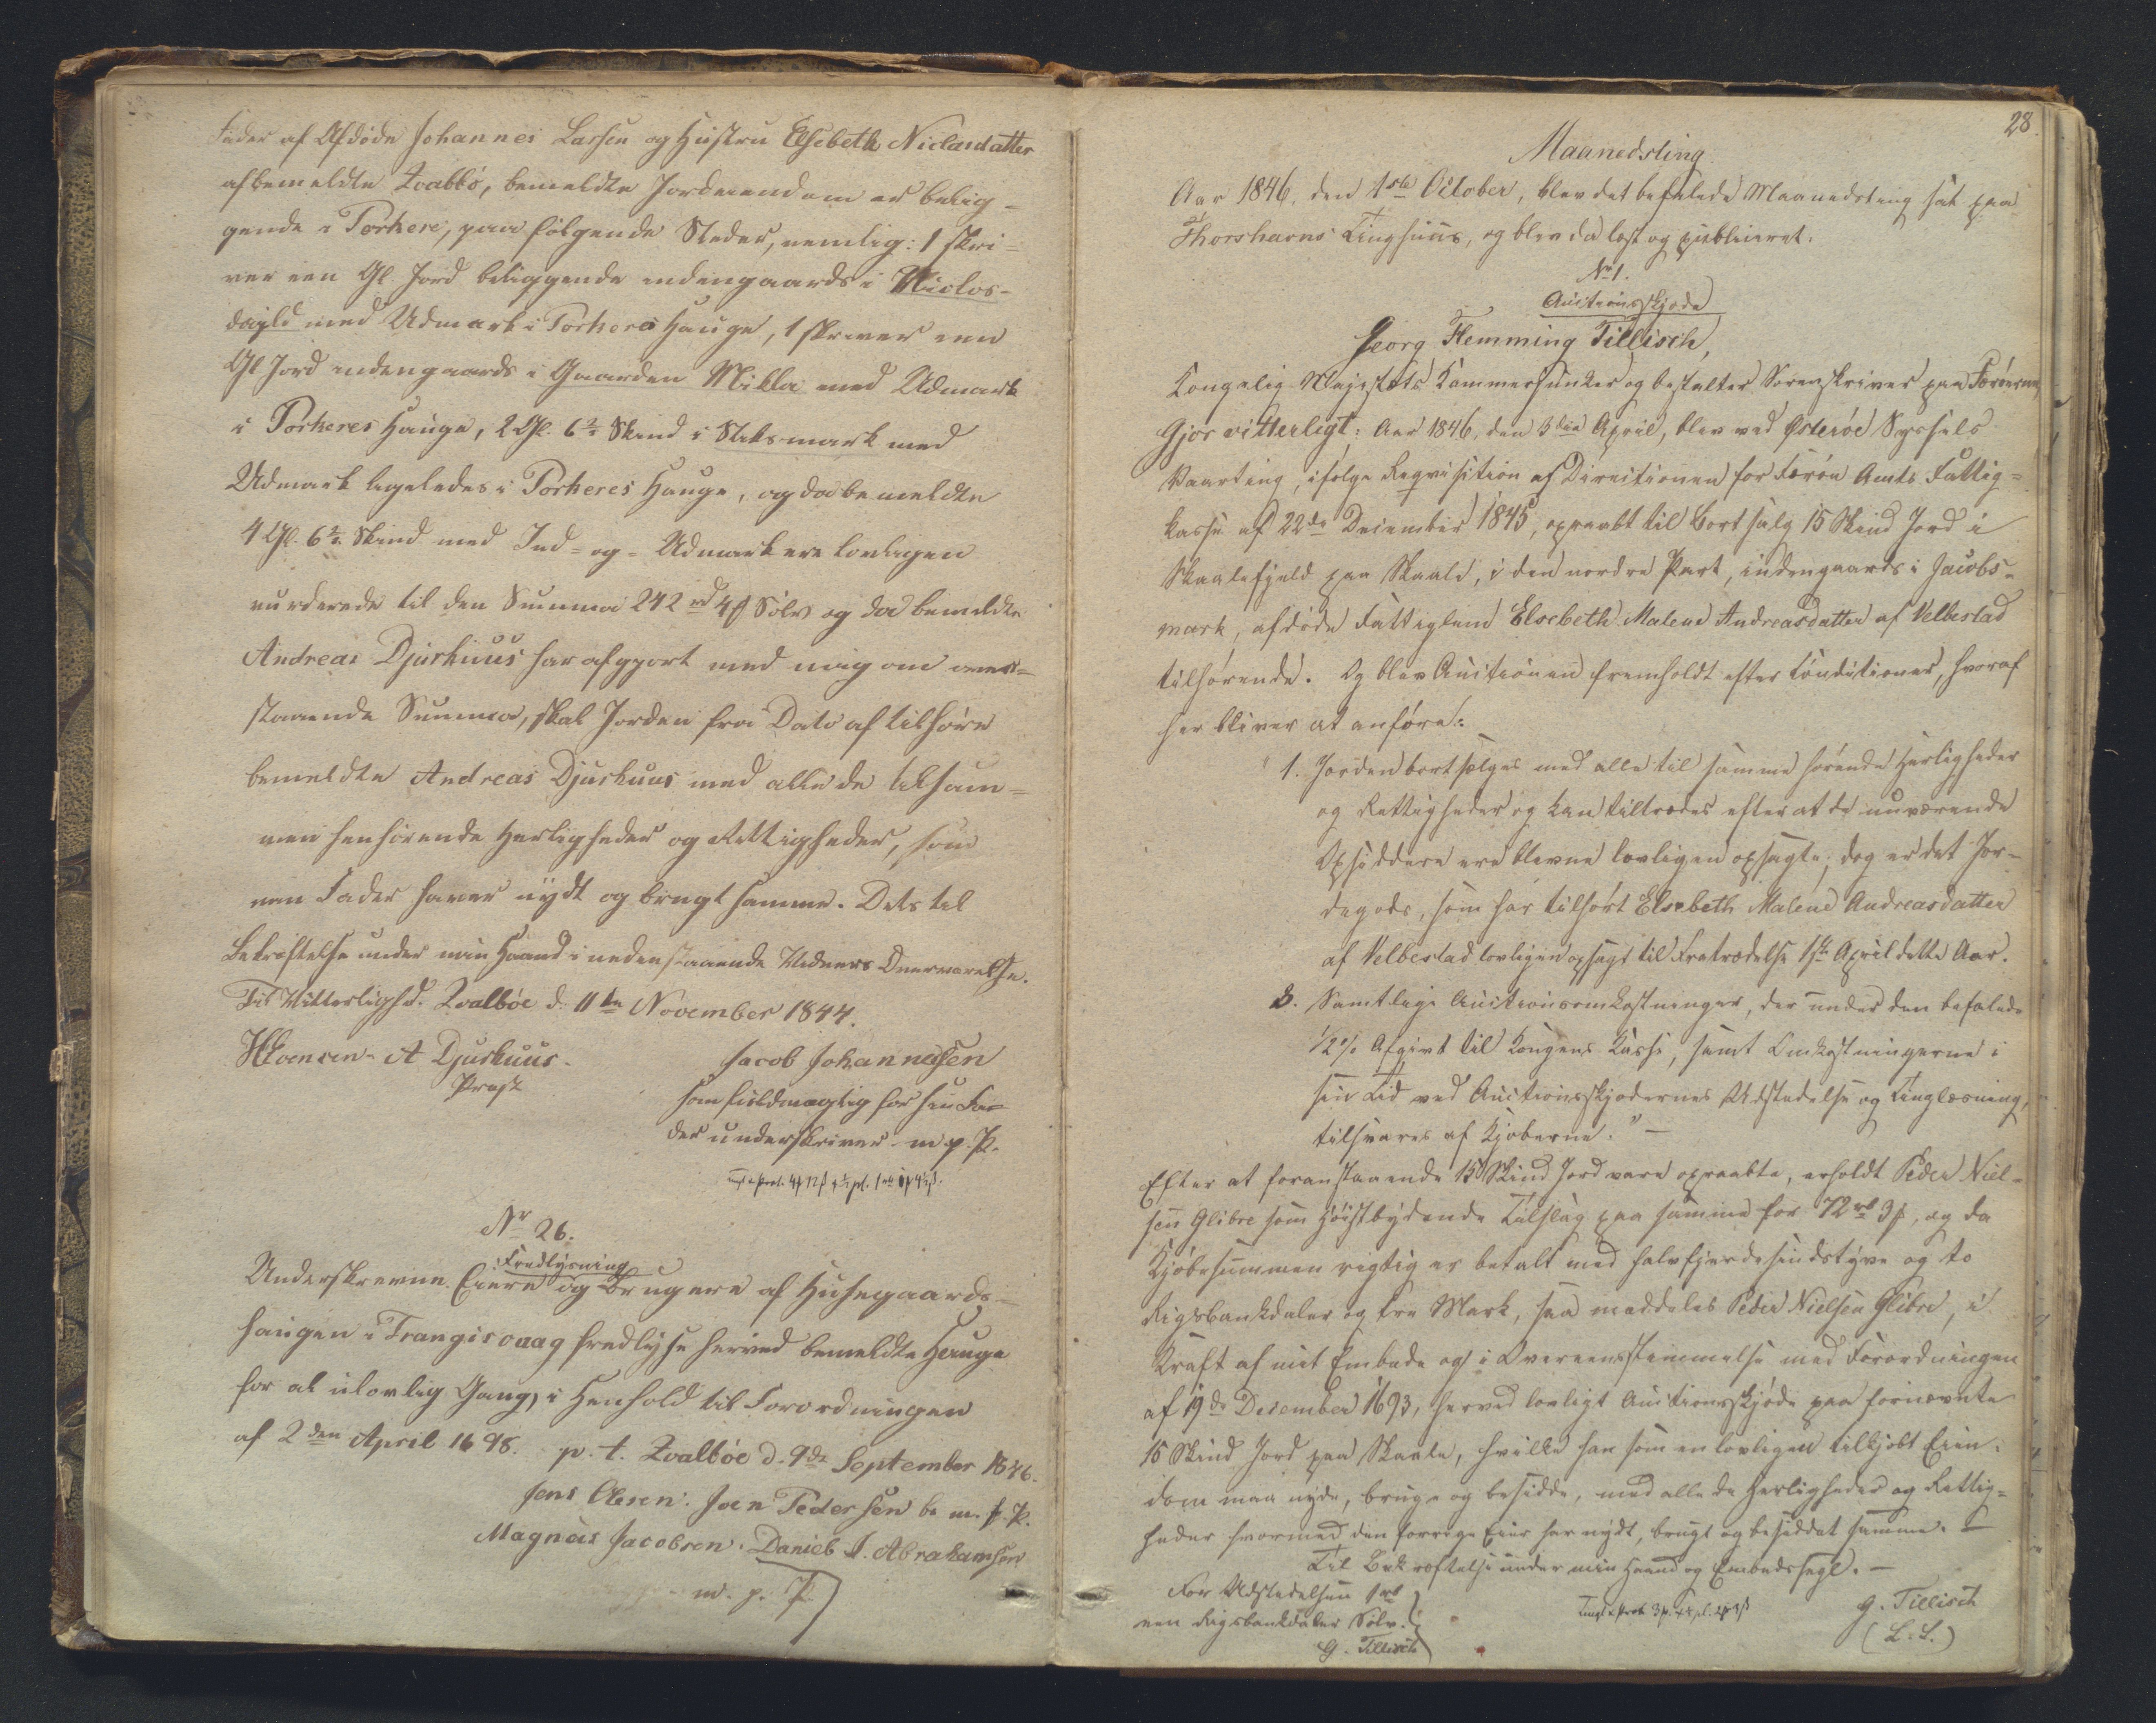 Fader af Afdøde Johannes Larsen og Hustru Elsebeth Niclasdatter
afbemeldte Qvalbø, bemeldte Jordeiendom er belig-
gende i Porkere, paa følgende Steder, nemlig: 1 skri-
ver een Gl Jord beliggende indengaards i Niclos-
dagld med Udmark i Porkeres Hauge, 1 skriver een
Gl Jord indengaards i Gaarden Mikla med Udmark
i Porkeres Hauge, 2 Gl. 6⅔ Skind i Stiksmark med
Udmark ligeledes i Porkeres Hauge, og da bemeldte
4 Gl. 6⅔ Skind med Ind- og- Udmark ere lovligen
vurderede til den Summa 242 rd 4 ß Sølv og da bemeldte
Andreas Djurhuus har afgjort med mig om oven-
staaende Summa, skal Jorden fra Dato af tilhøre
bemeldte Andreas Djurhuus med alle de tilsam-
men henhørende Herligheder og Rettigheder, som
min Fader haver nydt og brugt samme. Dets til
Bekræftelse under min Haand i nedenstaaende Vidners Overværelse.
Til Vitterlighd. Qvalbøe d. 11te November 1844.
A Djurhuus. Jacob Johannessen
Provst som fuldmægtig for sin Fa-
der underskriver m. p. P.
Nr 26.
Fredlysning
Underskrevne Eiere og Brugere af Husegaards-
haugen i Trangisvaag fredlyse herved bemeldte Hauge
for al ulovlig Gang, i Henhold til Forordningen
af 2den April 1698. p. t. Qvalbøe d. 9de September 1846.
Jens Olesen. Joen Pedersen m. p. P.
Magnus Jacobsen. Daniel J. Abrahamsen
m. p. P.
28.
Maanedsting.
Aar 1846, den 1ste October, blev det befalede Maanedsting sat paa
Thorshavns Tinghuus, og blev da læst og publiceret.
No 1.
Auctionsskjøde
Georg Flemming Tillisch,
Kongelig Majestæts Kammerjunker og bestalter Sorenskriver paa Færøerne,
Gjør vitterligt: Aar 1846, den 3die April, blev ved Østerøe Syssels
Vaarting, ifølge Requisition af Directionen for Færøe Amts Fattig-
kasse af 22de December 1845, opraabt til Bortsalg 15 Skind Jord i
Skaalefjeld paa Skaale, i den nordre Part, indengaards i Jacobs-
mark, afdøde Fattiglem Elsebeth Malene Andreasdatter af Velbestad
tilhørende. Og blev Auctionen fremholdt efter Conditioner, hvoraf
her bliver at anføre:
1. Jorden bortsælges med alle til samme hørende Herligheder
og Rettigheder og kan tiltrædes efter at de nuværende
Opsiddere ere blevne lovligen opsagte, dog er det Jor-
degods, som har tilhørt Elsebeth Malene Andreasdatter
af Velbestad lovligen opsagt til Fratrædelse 1ste April dette Aar.
3. Samtlige Auctionsomkostninger, derunder den befalede
½ % Afgivt til Kongens Kasse, samt Omkostningerne i
sin Tid ved Auctionsskjødernes Udstedelse og Tinglæsning,
tilsvares af Kjøberne." —
Efter at foranstaaende 15 Skind Jord vare opraabte, erholdt Peder Niel-
sen Glibre som høistbydende Tilslag paa samme for 72 rd 3 ß, og da
Kjøbesummen rigtig er betalt med halvfjerdesindstyve og to
Rigsbankdaler og tre Mark, saa meddeles Peder Nielsen Glibre, i
Kraft af mit Embede og i Overeensstemmelse med Forordningen
af 19de December 1693, herved lovligt Auctionsskjøde paa fornævnte
15 Skind Jord paa Skaale, hvilke han som en lovligen tilkjøbt Eien-
dom maa nyde, bruge og besidde, med alle de Herligheder og Rettig-
heder hvormed den forrige Eier har nydt, brugt og besiddet samme. —
Til Bekræftelse under min Haand og Embedssegl. —
For Udstedelsen 1 rd
een Rigsbankdaler Sølv.
G. Tillisch
G. Tillisch
(L. S.)